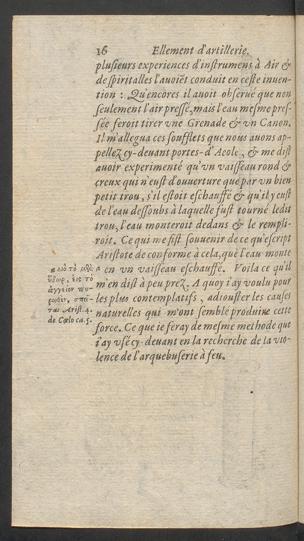 16 Ellement d'artillerie,
plusieurs experiences d'instrumens à Air &
de spiritalles l'avoiẽt conduit en ceste inuen-
tion : Qu'encores il auoit obserué que non
seulement l'air pressé, mais l'eau mesme pres-
sée feroit tirer vne Grenade & vn Canon.
Il m'allegua ces soufflets que nous auons ap-
pellez cy-deuant portes-d'Aeole, & me dist
auoir experimenté qu'vn vaisseau rond &
creux qui n'eust d'ouuerture que par vn bien
petit trou, s'il estoit eschauffé & qu'il y eust
de l'eau dessoubs à laquelle fust tourné ledit
trou, l'eau monteroit dedans & le rempli-
roit. Ce qui me fist souuenir de ce qu'escript
Aristote de conforme à cela, que l'eau monte
a en vn vaisseau eschauffé. Voila ce qu'il
m'en dist à peu prez. A quoy i'ay voulu pour
les plus contemplatifs, adiouster les causes
naturelles qui m'ont semblé produire cette
force. Ce que ie feray de mesme methode que
i'ay vsé cy-deuant en la recherche de la vio-
lence de l'arquebuserie à feu.
a διὸ τὸ
ὕδωρ, εἰς τὸ
ἀγγεῖον πυ-
ρωθὲν, σπᾶ-
ται Arist. 4.
de Cœlo ca. 5.